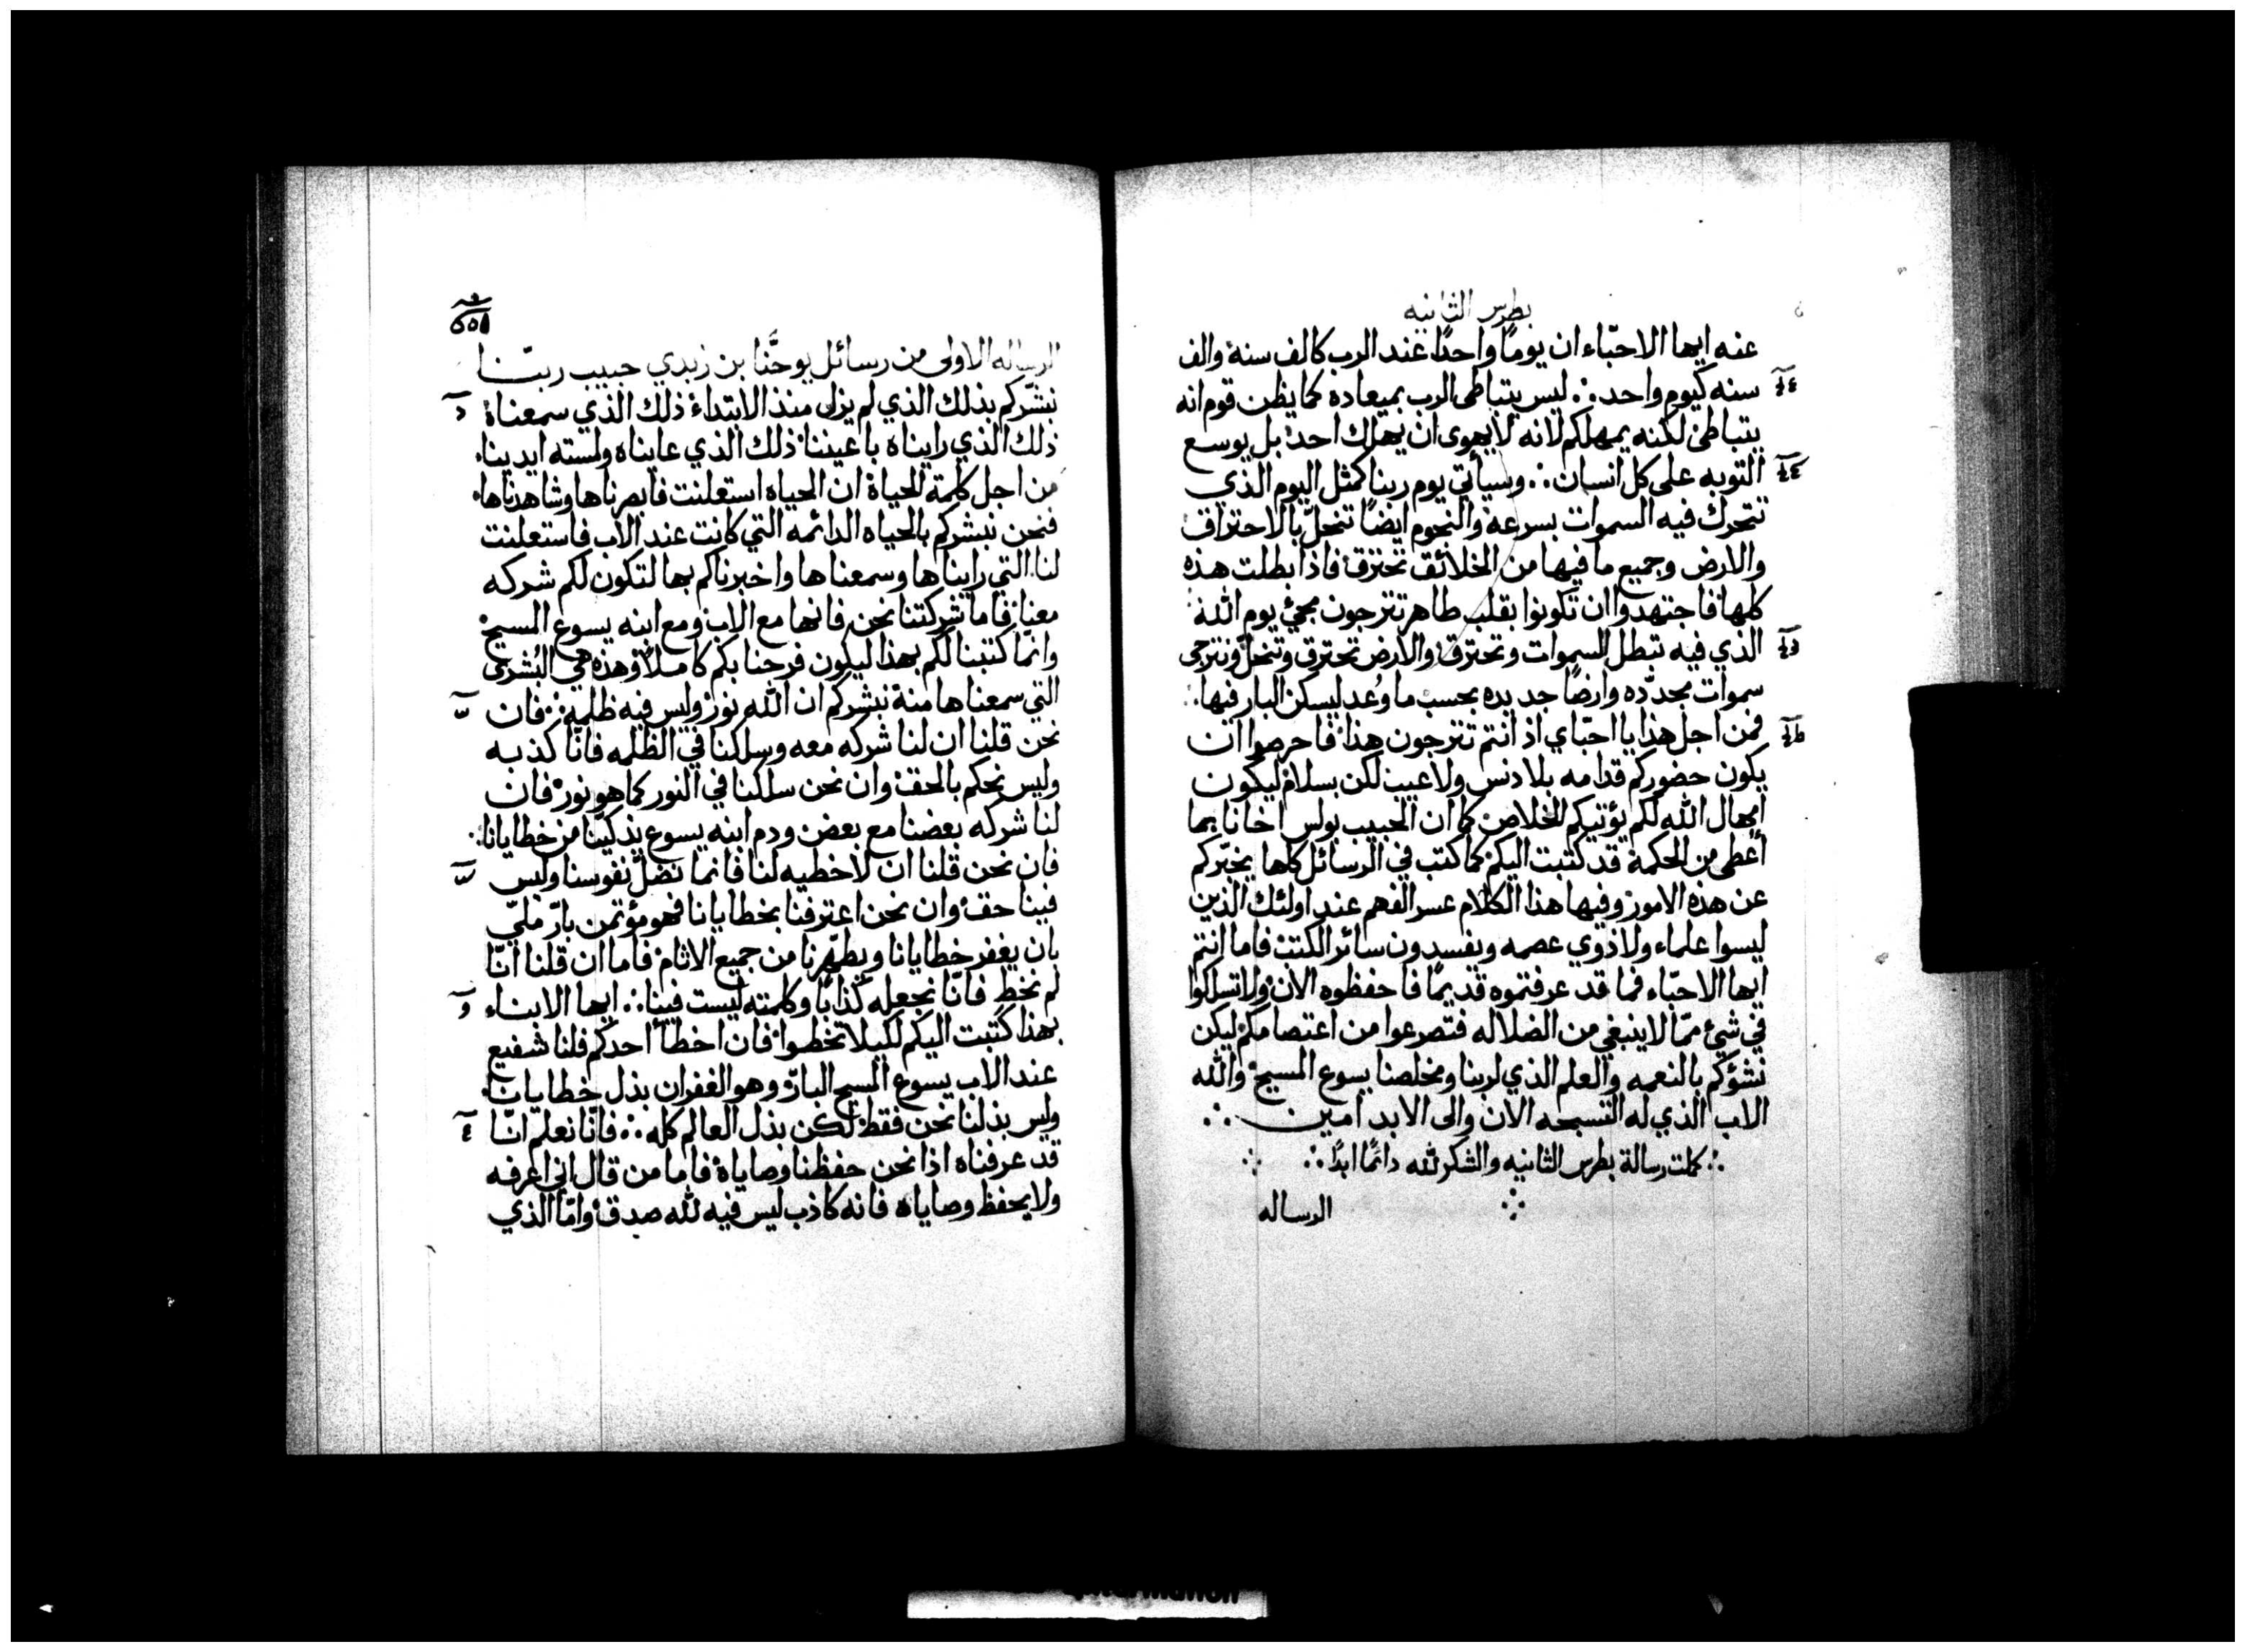 بطرس الثانيه
عنه ايها الاحبّاء ان يومًا واحدًا عند الرب كالف سنة والف
سنه كيوم واحد ∴ ليس يتباطى الرب بميعاده كما يظن قوم انه
يتباطئ لكنه يمهلكم لانه لا يهوى ان يهلك احد بل يوسع
التوبه على كل انسان ∴ وسيأتي يوم ربنا كمثل اليوم الذي
تتحرك فيه السموات بسرعة والنجوم ايضًا تنحلّ بالاحتراق
والارض وجميع ما فيها من الخلائق تحترق فاذا بطلت هذه
كلها فاجتهدوا ان تكونوا بقلب طاهر تترجون مجئ يوم الله
الذي فيه تبطل السموات وتحترق والارض تحترق وتنحلّ ونترجى
سموات مجدّده وارضًا جديده بحسب ما وُعد ليسكن البار فيها ∴
فمن اجل هذا يا احبّاي اذ انتم تترجون هذا فاحرصوا ان
يكون حضوركم قدامه بلا دنس ولا عيب لكن بسلام ليكون
امهال الله لكم يؤتيكم الخلاص كما ان الحبيب بولس اخانا بما
أعطى من الحكمة قد كتبت اليكم كما كتب في الرسائل كلها يخبّركم
عن هذه الامور وفيها هذا الكلام عسر الفهم عند اولئك الذين
ليسوا علماء ولا ذوي عصمه ويفسدون سائر الكتب فاما انتم
ايها الاحبّاء فما قد عرفتموه قديمًا فاحفظوه الان ولا تسلكوا
في شئ ممّا لا ينبغي من الضلاله فتصرعوا من اعتصامكم ليكن
نشؤكم بالنعمه والعلم الذي لربنا ومخلصنا يسوع المسيح والله
الاب الذي له التسبحه الان والى الابد امين ∴
∴ كملت رسالة بطرس الثانيه والشكر لله دائمًا ابدًا ∴
الرساله
الرساله الاولى من رسائل يوحنَّا بن زبدي حبيب ربّنا
نبشّركم بذلك الذي لم يزل منذ الابتداء ذلك الذي سمعناه
ذلك الذي رايناه باعيننا ذلك الذي عايناه ولمسته ايدينا
من اجل كلمة الحياة ان الحياه استعلنت فابصرناها وشاهدناها
فنحن نبشركم بالحياه الدائمه التي كانت عند الاب فاستعلنت
لنا التي رايناها وسمعناها واخبرناكم بها لتكون لكم شركه
معنا فاما شركتنا نحن فانها مع الاب ومع ابنه يسوع المسيح
وانّما كتبنا لكم بهذا ليكون فرحنا بكم كاملًا وهذه هي البُشرى
التي سمعناها منه نبشركم ان الله نور وليس فيه ظلمه ∴ فان
نحن قلنا ان لنا شركه معه وسلكنا في الظلمه فانّا كذبه
وليس نحكم بالحق وان نحن سلكنا في النور كما هو نور فان
لنا شركه بعضنا مع بعض ودم ابنه يسوع يذكّينا من خطايانا ∴
فان نحن قلنا ان لا خطيه لنا فانما نضلّ نفوسنا وليس
فينا حق وان نحن اعترفنا بخطايانا فهو مؤتمن بارّ مليّ
بان يغفر خطايانا ويطهّرنا من جميع الاثام فاما ان قلنا انّا
لم نخطِ فانّا نجعله كذابًا وكلمته ليست فينا ∴ ايها الابناء
بهذا كتبت اليكم لكيلا تخطوا فان اخطأ احدكم فلنا شفيع
عند الاب يسوع المسيح البارّ وهو الغفران بذل خطايانا
وليس بذلنا نحن فقط لكن بذل العالم كله ∴ فانّا نعلم انّا
قد عرفناه اذا نحن حفظنا وصاياه فاما من قال اني اعرفه
ولا يحفظ وصاياه فانه كاذب ليس فيه لله صدق وامّا الذي